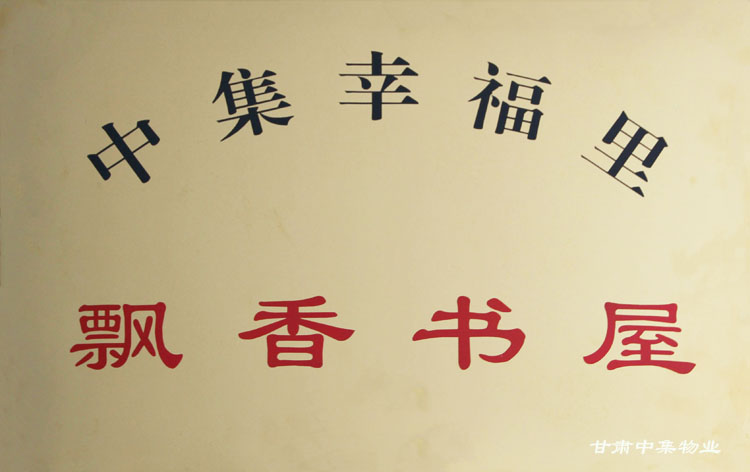 中集幸福里
飘香书屋
甘肃中集物业